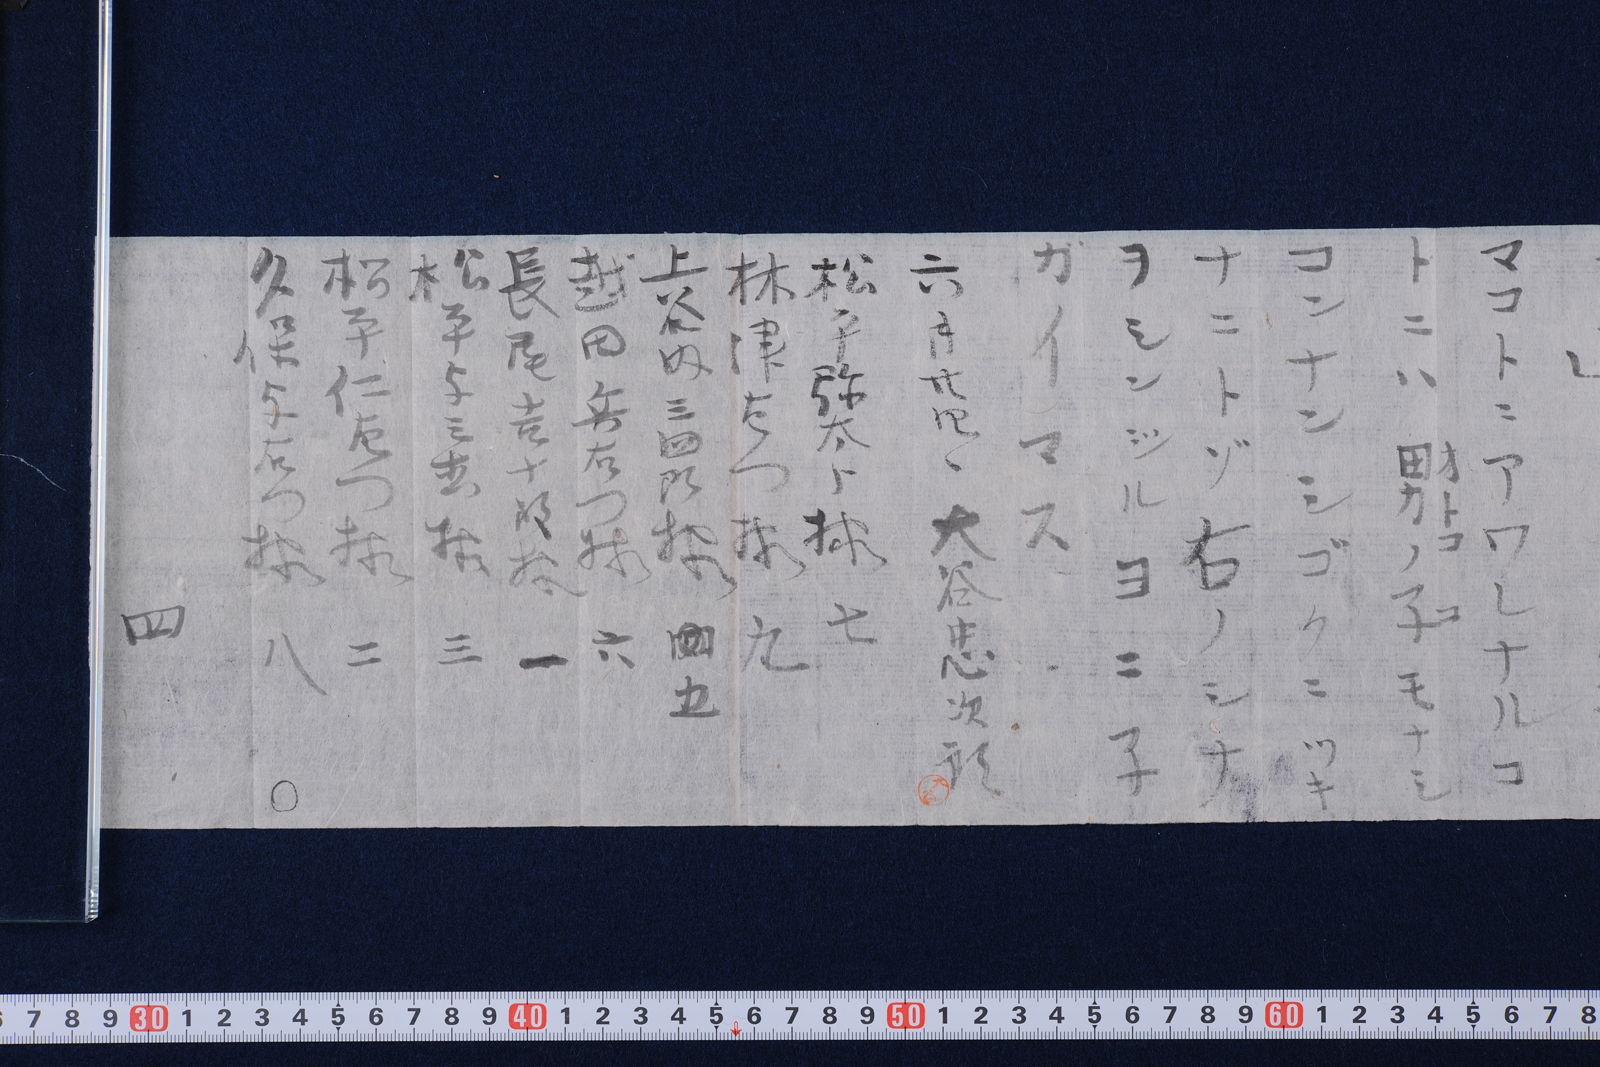 マコトニアワレナルコ
トニハ男ノ子モナシ
オトコ コ
コンナンシゴクニツキ
ナニトゾ右ノシナ
ヲシンジルヨニ子
ガイマス
六月廿四日 大谷忠次郎
松平弥太下様 七
林津右門様 九
上谷内三四郎様 五
越田兵右門様 六
長尾吉十郎様 一
松平与三吉様 三
松平仁右門様 二
久保与右門様 八
四
30 1 2 3 4 5 6 7 8 9 40 1 2 3 4 5 6 7 8 9 50 1 2 3 4 5 6 7 8 9 60 1 2 3 4 5 6 7 8